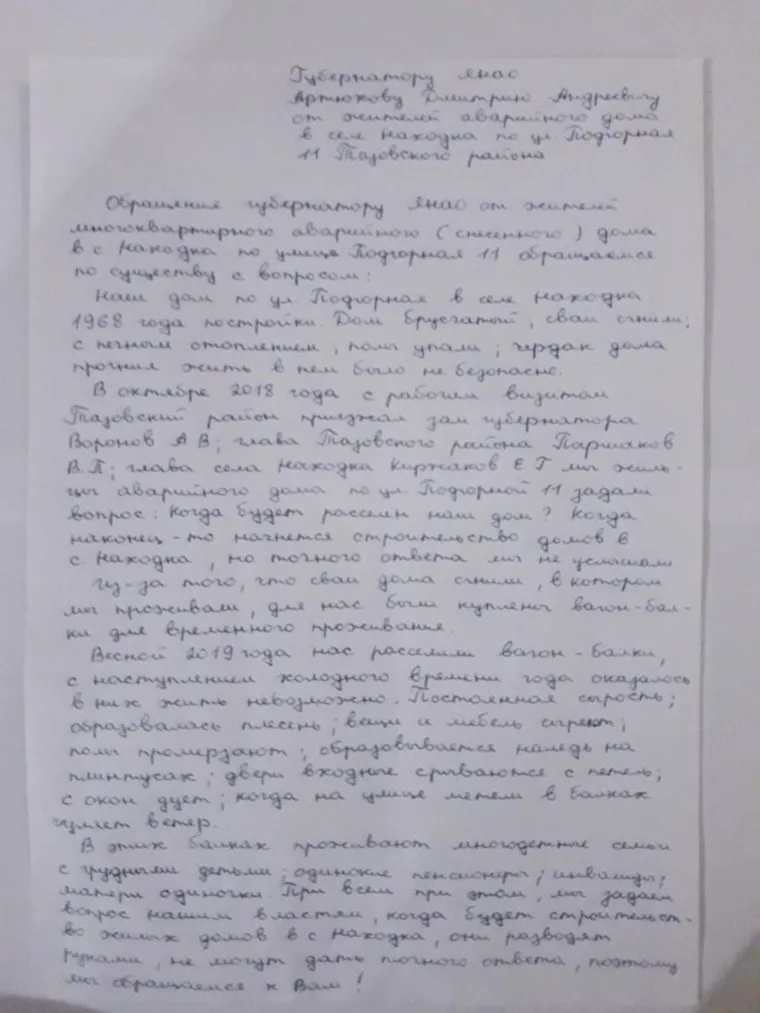 Губернатору ЯНАО
Артюхову Дмитрию Андреевичу
от жителей аварийного дома
в селе Находка по ул. Подгорная
11 Тазовского района
Обращение губернатору ЯНАО от жителей
многоквартирного аварийного (снесенного) дома
в с Находка по улице Подгорная 11 обращаемся
по существу с вопросом:
Наш дом по ул. Подгорная в селе Находка
1968 года постройки. Дом брусчатый, сваи сгнили;
с печным отоплением, полы упали; чердак дома
прогнил жить в нем было не безопасно.
В октябре 2018 года с рабочим визитом
Тазовский район приезжал зам губернатора
Воронов А В; глава Тазовского района Паршаков
В.П; глава села Находка Киржаков Е Г мы жиль-
цы аварийного дома по ул. Подгорной 11 задали
вопрос: Когда будет расселен наш дом? Когда
наконец-то начнется строительство домов в
с. Находка, но точного ответа мы не услышали
Из-за того, что сваи дома сгнили, в котором
мы проживали, для нас были куплены вагон-бал-
ки для временного проживания.
Весной 2019 года нас расселили вагон-балки,
с наступлением холодного времени года оказалось
в них жить невозможно. Постоянная сырость;
образовалась плесень; вещи и мебель сыреют;
полы промерзают; образовывается наледь на
плинтусах; двери входные срываются с петель;
с окон дует; когда на улице метель в балках
гуляет ветер.
В этих балках проживают многодетные семьи
с грудными детьми; одинокие пенсионеры; инвалиды;
матери одиночки. При всем при этом, мы задаем
вопрос нашим властям, когда будет строительст-
во жилых домов в с Находка, они разводят
руками, не могут дать точного ответа, поэтому
мы обращаемся к Вам!